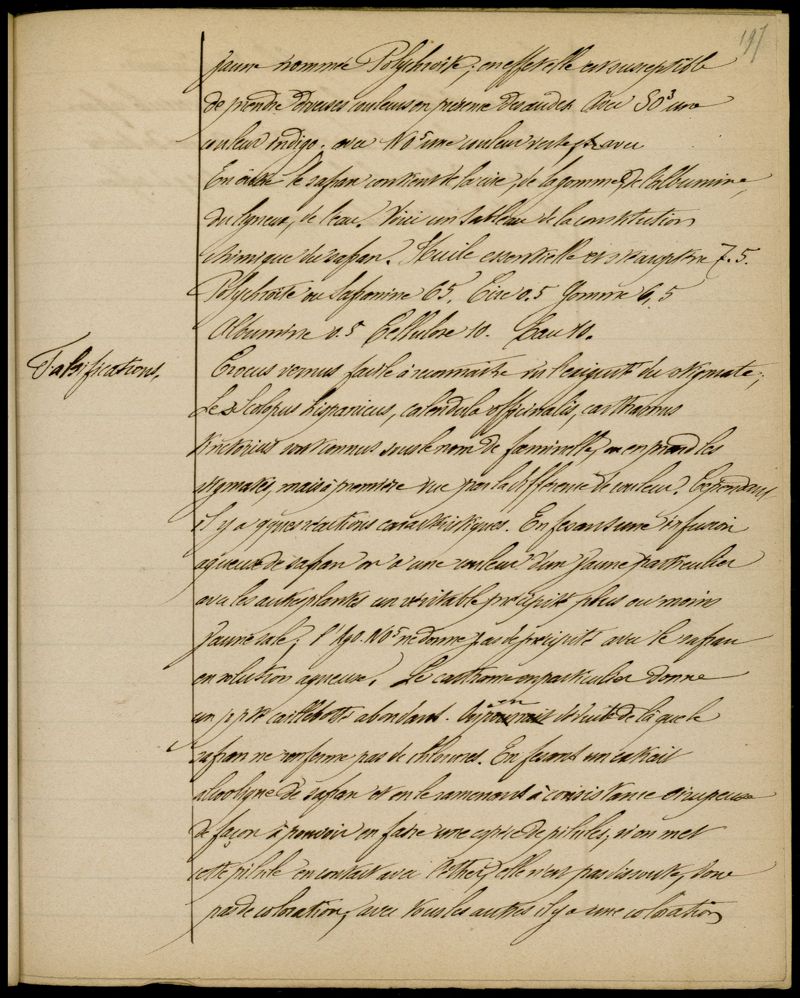 197
jaune nommée Polychroïte, en effet elle est susceptible
de prendre diverses couleurs en présence des acides. Avec SO³ une
couleur indigo. avec NO⁵ une couleur verte, avec
En outre le safran contient de la cire, de la gomme, de l'albumine,
du ligneux, de l'eau. Voici un tableau de la constitution
chimique du safran. Huile essentielle 7.5.
Polychroïte ou Safranine 65. Cire 0.5 Gomme 6,5
Albumine 0.5 Cellulose 10. Eau 10.
Falsifications.
Crocus vernus facile à reconnaître du stigmate;
Le Scolymus hispanicus, calendula officinalis, carthamus
tinctorius sont connus sous le nom de féminelle, on en prend les
stigmates, mais à première vue par la différence de couleur. Cependant
il y a qques réactions caractéristiques. En faisant une infusion
aqueuse de safran on a une couleur d'un jaune particulier
avec les autres plantes un véritable précipité plus ou moins
jaune sale; l'AgO.NO⁵ ne donne pas de précipité avec le safran
en solution aqueuse. Le carthame en particulier donne
un ppté caillebotté abondant. on déduit de là que le
safran ne renferme pas de chlorures. En faisant un extrait
alcoolique de safran et en le ramenant à consistance sirupeuse
de façon à pouvoir en faire une espèce de pilules, si on met
cette pilule en contact avec l'éther, elle n'est pas dissoute, donc
pas de coloration, avec tous les autres il y a une coloration